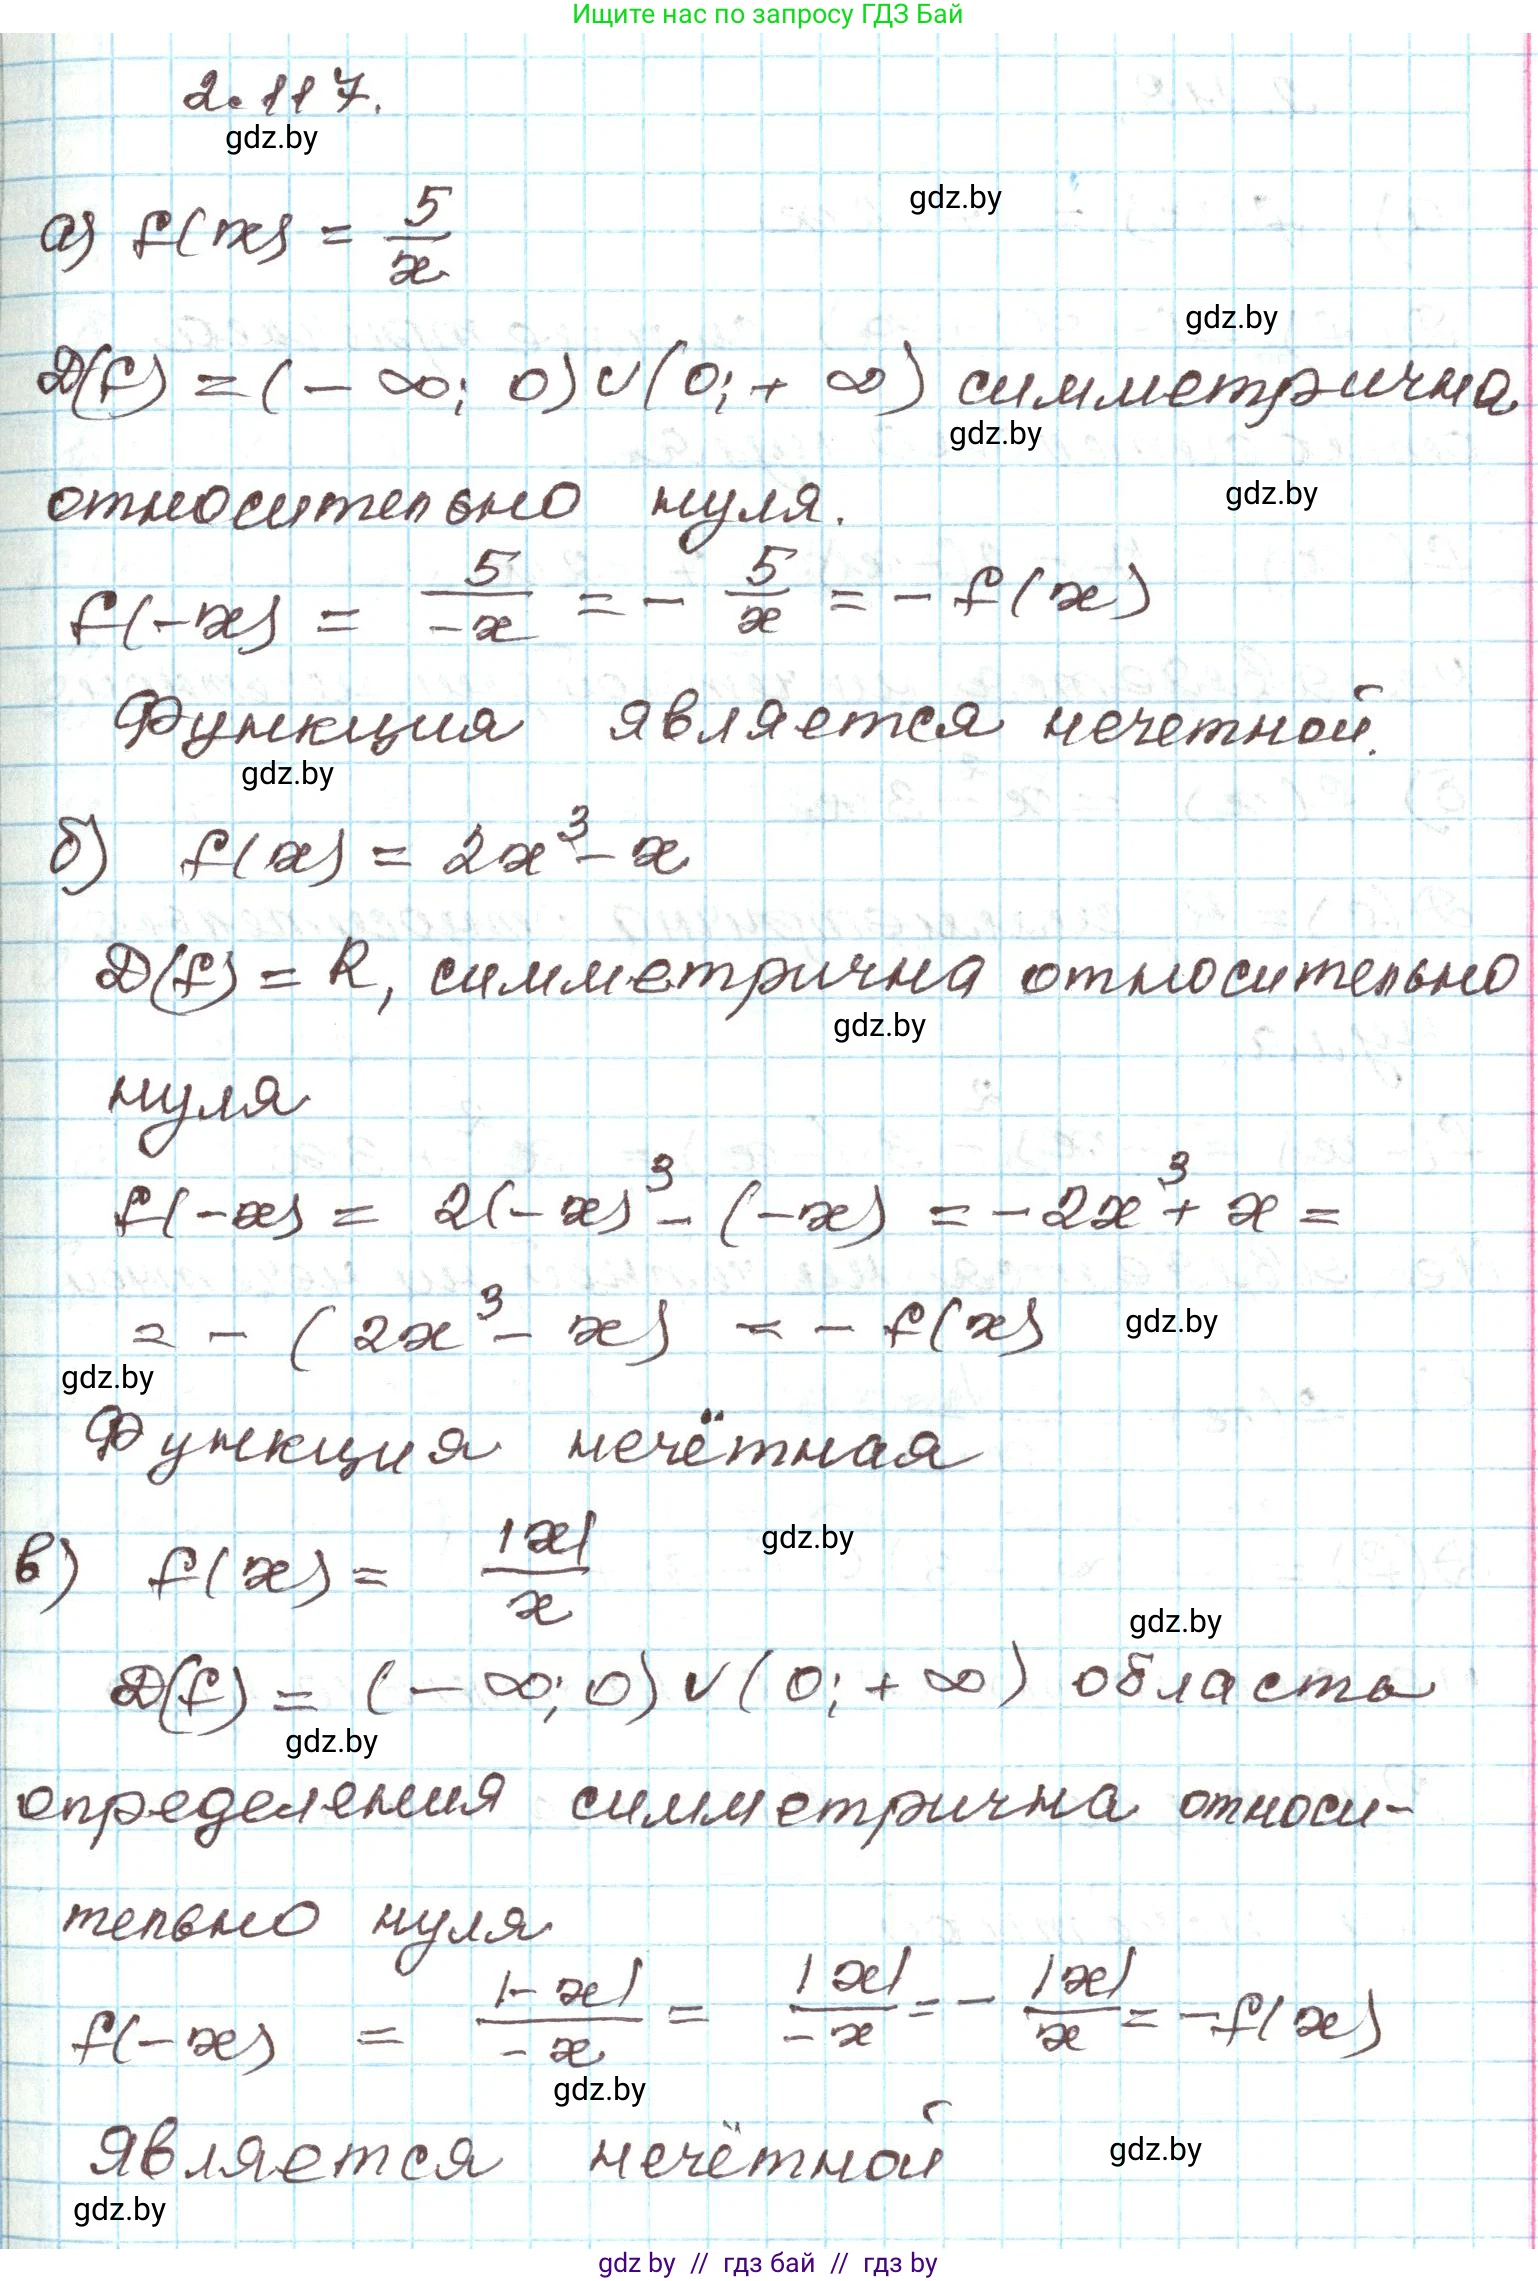 Ищите нас по запросу ГДЗ Бай
2.117.
gdz.by
gdz.by
а) f(x) = 5/x
gdz.by
D(f) = (- ∞; 0) ∪ (0; + ∞) симметрична
gdz.by
относительно нуля.
gdz.by
f(-x) = 5/-x = - 5/x = - f(x)
Функция является нечетной.
gdz.by
б) f(x) = 2x³ - x
D(f) = R, симметрична относительно
gdz.by
нуля
f(-x) = 2(-x)³ - (-x) = -2x³ + x =
= - (2x³ - x) = - f(x)
gdz.by
gdz.by
Функция нечётная
в) f(x) = |x|/x
gdz.by
gdz.by
D(f) = (- ∞; 0) ∪ (0; + ∞) область
gdz.by
определения симметрична относи-
тельно нуля
f(-x) = |-x|/-x = |x|/-x = - |x|/x = -f(x)
gdz.by
является нечётной
gdz.by
gdz.by
gdz by // гдз бай // гдз by